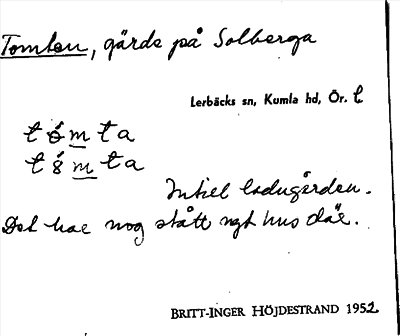 Tomten, gärde på Solberga
Lerbäcks sn, Kumla hd, Ör. l
tómta
t8́mta
Intill ladugården.
Det har nog stått ngt hus där.
BRITT-INGER HÖJDESTRAND 1952